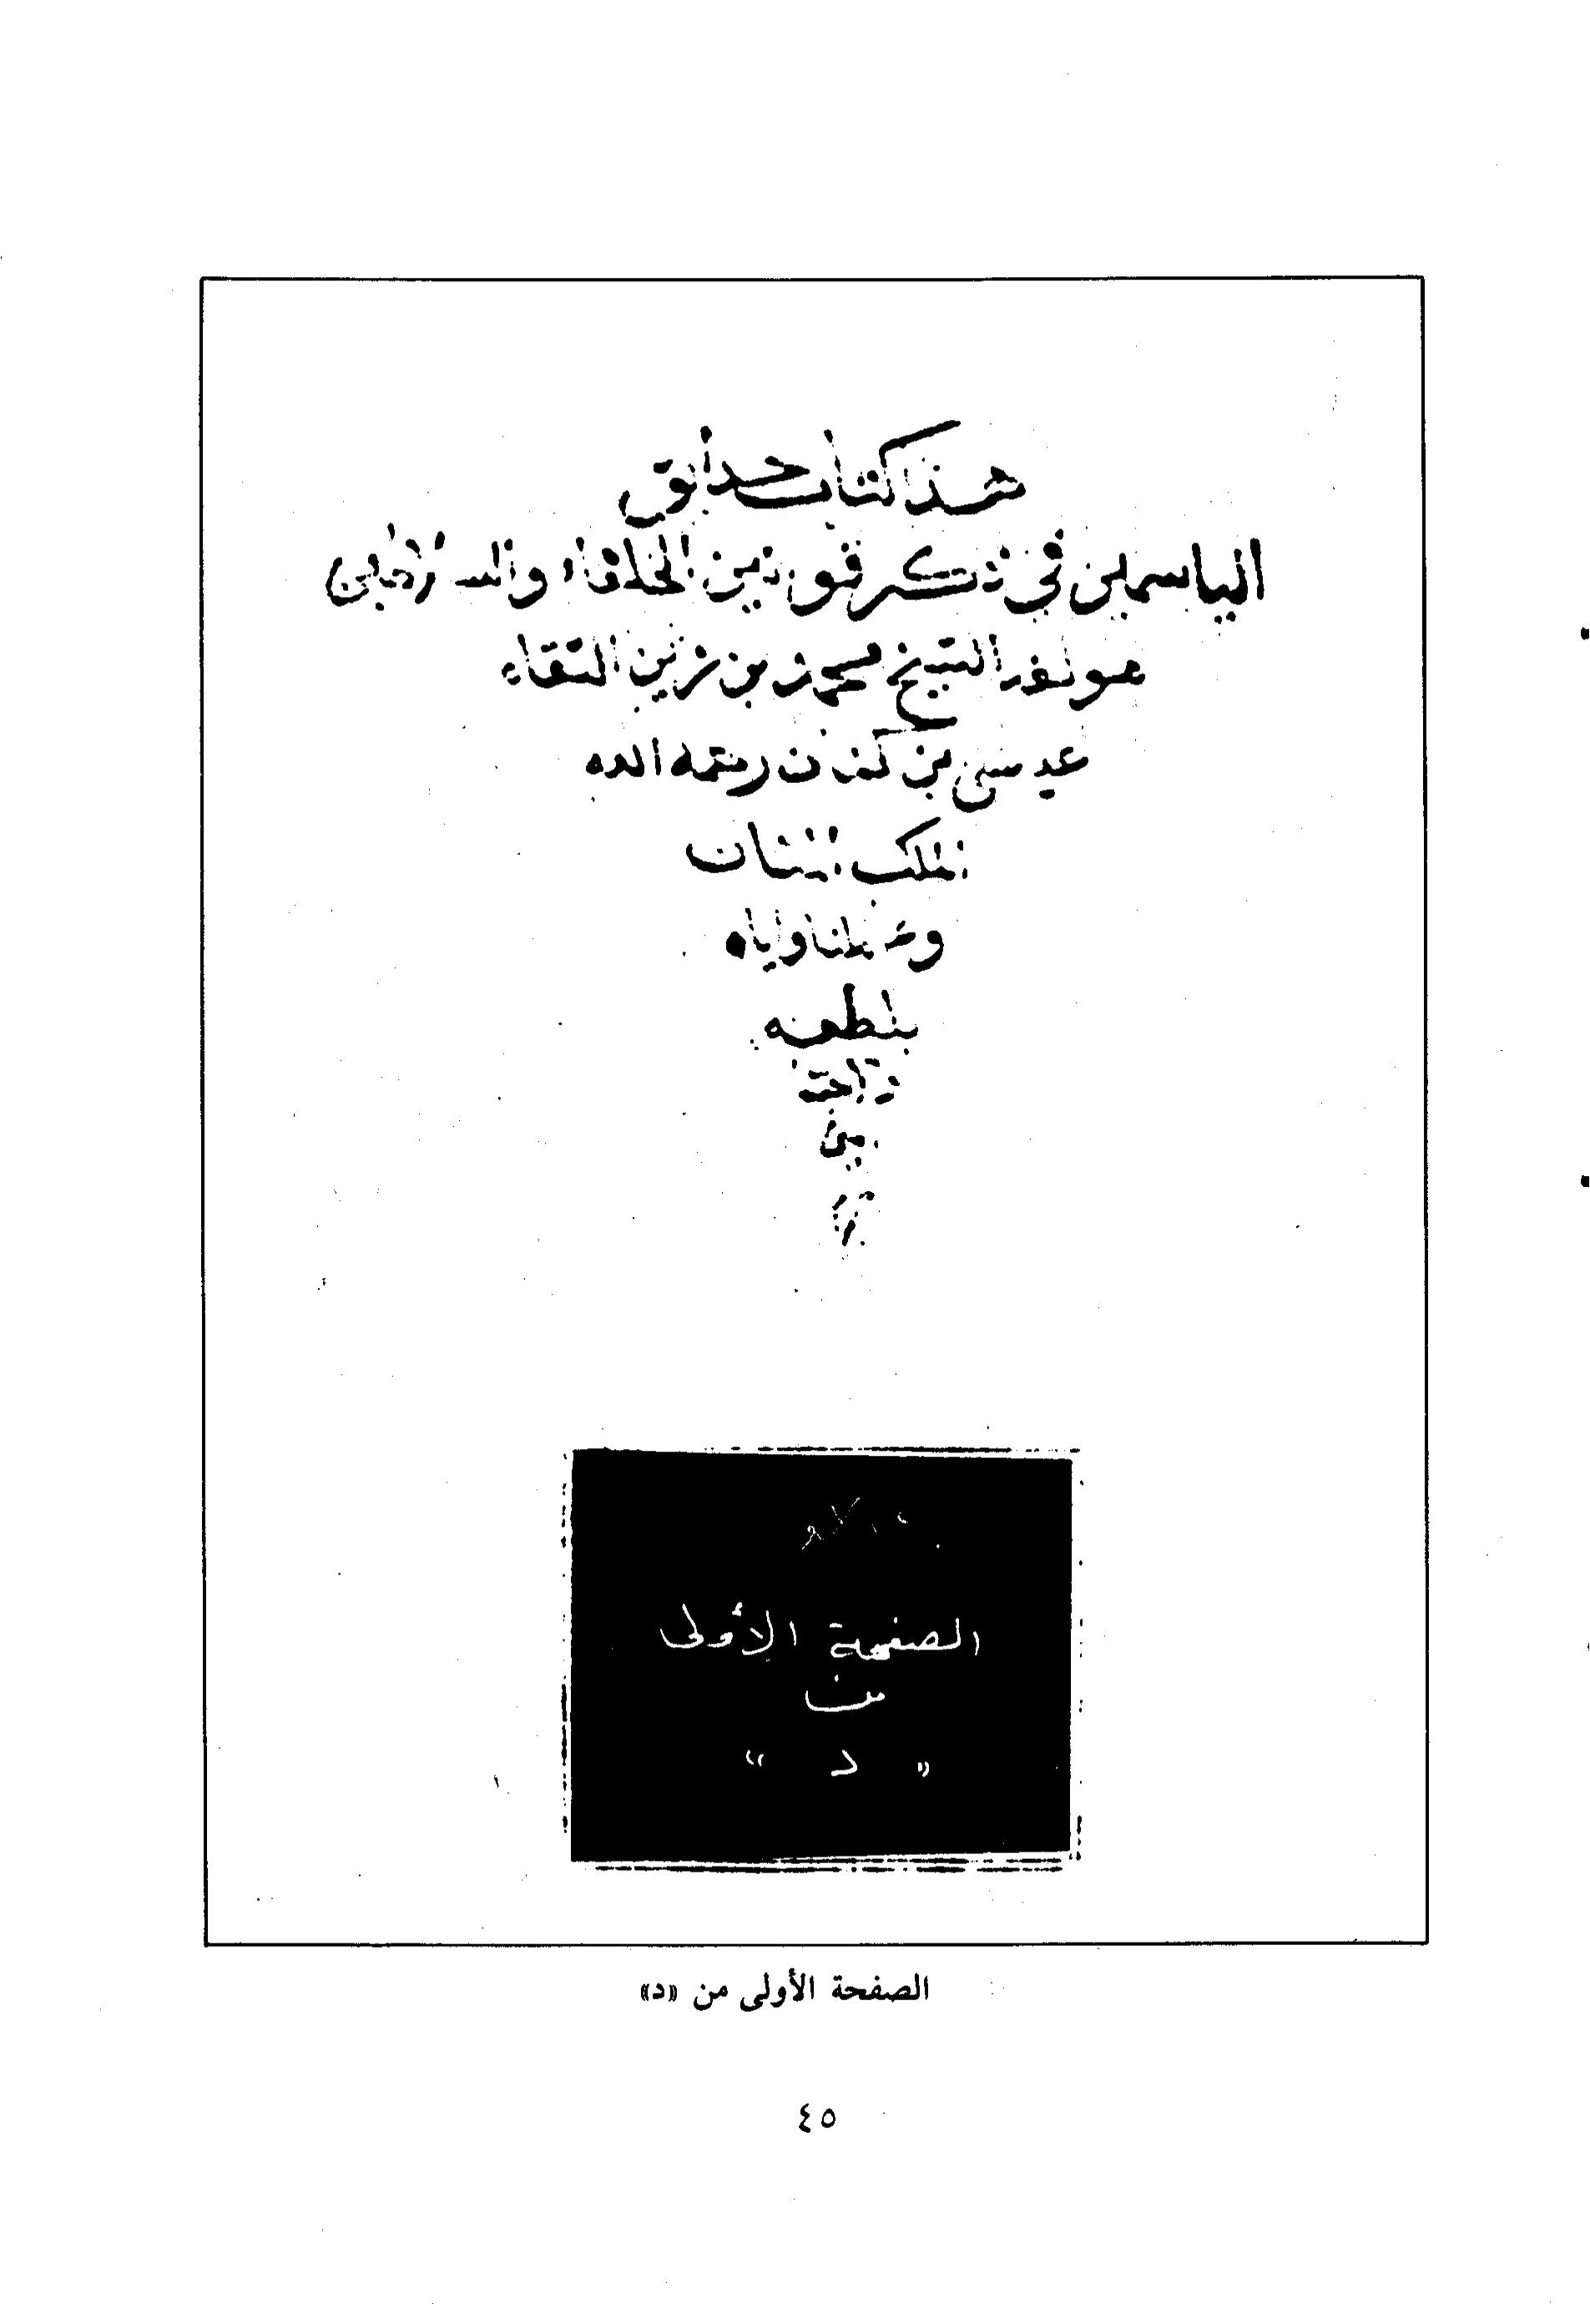 هذا كتاب حدايق
الياسمين في ذكر قوانين الخلفاء والسلاطين
الشيخ محمد بن
عيسى بن كنان رحمه الله
الملك المنان
واياه
بلطفه
الصفحة الأولى
من
« د »
الصفحة الأولى من «د»
٤٥